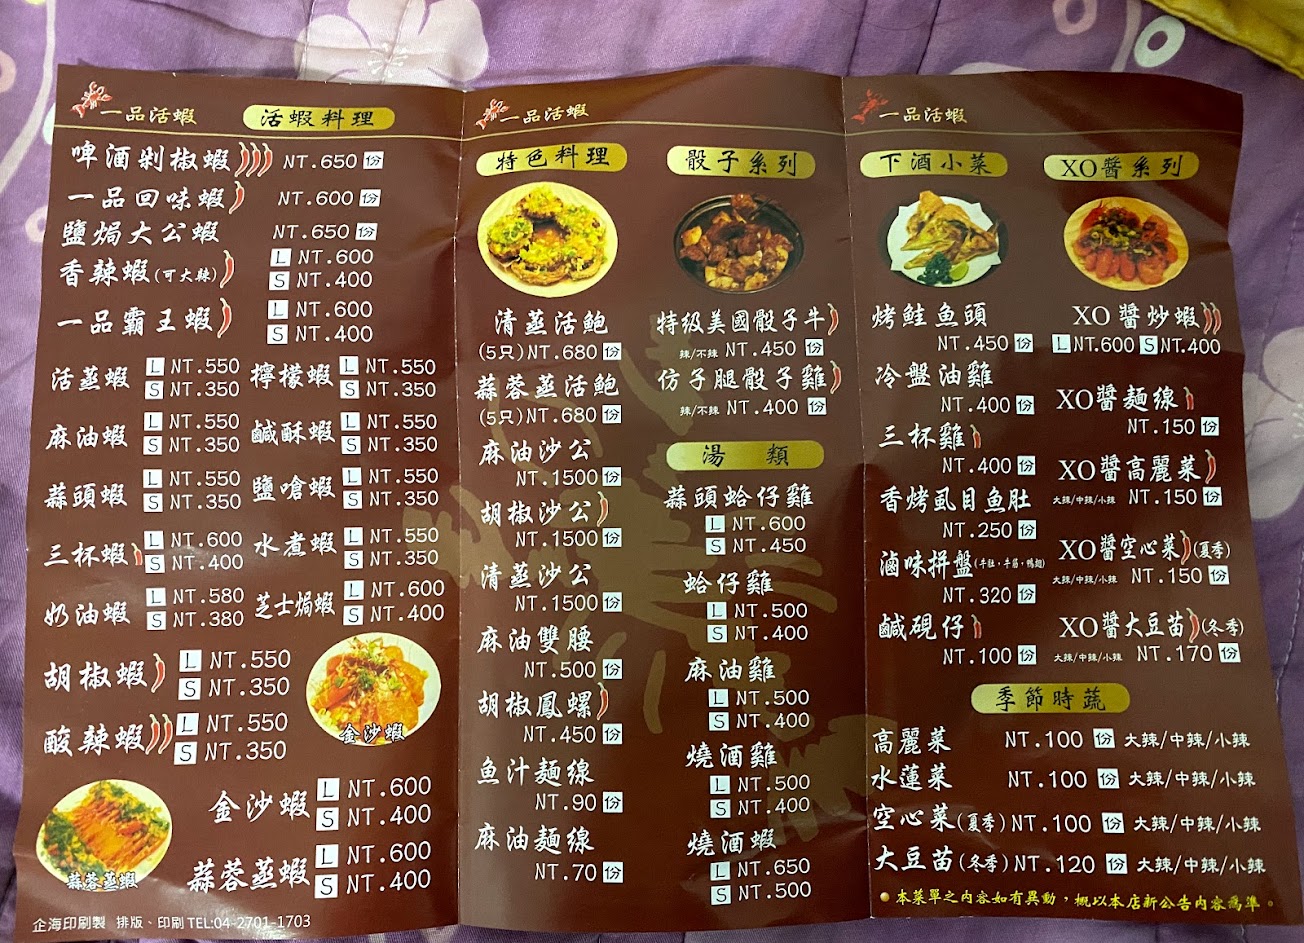 一品活蝦
活蝦料理
啤酒剁椒蝦 NT.650 份
一品回味蝦 NT.600 份
鹽焗大公蝦 NT.650 份
香辣蝦(可大辣) L NT.600
S NT.400
一品霸王蝦 L NT.600
S NT.400
活蒸蝦 L NT.550
S NT.350
檸檬蝦 L NT.550
S NT.350
麻油蝦 L NT.550
S NT.350
鹹酥蝦 L NT.550
S NT.350
蒜頭蝦 L NT.550
S NT.350
鹽嗆蝦 L NT.550
S NT.350
三杯蝦 L NT.600
S NT.400
水煮蝦 L NT.550
S NT.350
奶油蝦 L NT.580
S NT.380
芝士焗蝦 L NT.600
S NT.400
胡椒蝦 L NT.550
S NT.350
酸辣蝦 L NT.550
S NT.350
金沙蝦
金沙蝦 L NT.600
S NT.400
蒜蓉蒸蝦
蒜蓉蒸蝦 L NT.600
S NT.400
企海印刷製 排版、印刷 TEL:04-2701-1703
一品活蝦
特色料理
清蒸活鮑
(5只)NT.680 份
蒜蓉蒸活鮑
(5只)NT.680 份
麻油沙公
NT.1500 份
胡椒沙公
NT.1500 份
清蒸沙公
NT.1500 份
麻油雙腰
NT.500 份
胡椒鳳螺
NT.450 份
魚汁麵線
NT.90 份
麻油麵線
NT.70 份
骰子系列
特級美國骰子牛
辣/不辣 NT.450 份
仿子腿骰子雞
辣/不辣 NT.400 份
湯 類
蒜頭蛤仔雞
L NT.600
S NT.450
蛤仔雞
L NT.500
S NT.400
麻油雞
L NT.500
S NT.400
燒酒雞
L NT.500
S NT.400
燒酒蝦
L NT.650
S NT.500
一品活蝦
下酒小菜
烤鮭魚頭
NT.450 份
冷盤油雞
NT.400 份
三杯雞
NT.400 份
香烤虱目魚肚
NT.250 份
滷味拼盤(牛肚、牛筋、鴨翅)
NT.320 份
鹹硯仔
NT.100 份
XO醬系列
XO醬炒蝦
L NT.600 S NT.400
XO醬麵線
NT.150 份
XO醬高麗菜
大辣/中辣/小辣 NT.150 份
XO醬空心菜(夏季)
大辣/中辣/小辣 NT.150 份
XO醬大豆苗(冬季)
大辣/中辣/小辣 NT.170 份
季節時蔬
高麗菜 NT.100 份 大辣/中辣/小辣
水蓮菜 NT.100 份 大辣/中辣/小辣
空心菜(夏季) NT.100 份 大辣/中辣/小辣
大豆苗(冬季) NT.120 份 大辣/中辣/小辣
●本菜單之內容如有異動,概以本店新公告內容為準。